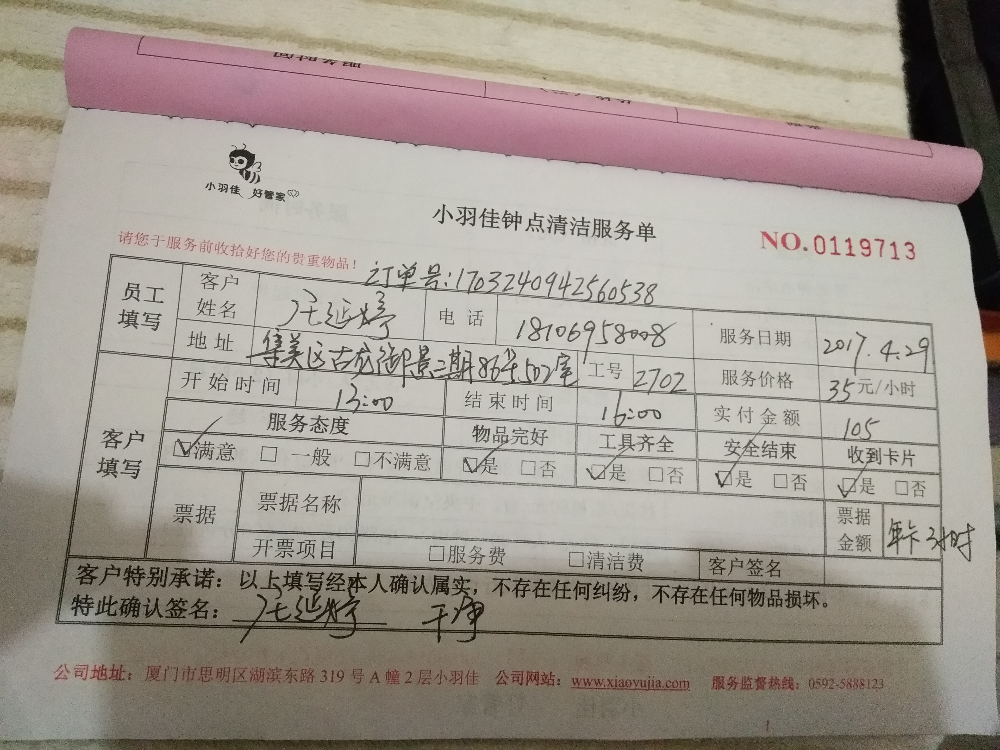 小羽佳 好管家
小羽佳钟点清洁服务单
NO.0119713
请您于服务前收拾好您的贵重物品！
订单号:1703240942560538
员工填写 客户姓名 庄延婷 电话 18106958008 服务日期 2017.4.29
地址 集美区古龙御景二期86号502室 工号 2702 服务价格 35元/小时
客户填写 开始时间 13:00 结束时间 16:00 实付金额 105
服务态度 物品完好 工具齐全 安全结束 收到卡片
☑满意 □一般 □不满意 ☑是 □否 ☑是 □否 ☑是 □否 ☑是 □否
票据 票据名称 票据金额 年卡3小时
开票项目 □服务费 □清洁费 客户签名
客户特别承诺：以上填写经本人确认属实，不存在任何纠纷，不存在任何物品损坏。
特此确认签名：庄延婷 干净
公司地址：厦门市思明区湖滨东路319号A幢2层小羽佳 公司网站：www.xiaoyujia.com 服务监督热线：0592-5888123
1